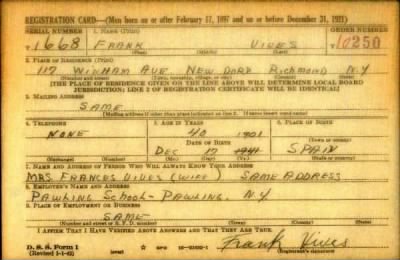 REGISTRATION CARD—(Men born on or after February 17, 1897 and on or before December 31, 1921)
SERIAL NUMBER 1. NAME (Print) ORDER NUMBER
1668 FRANK VIVES 10250
(First) (Middle) (Last)
2. PLACE OF RESIDENCE (Print)
117 WINHAM AVE NEW DORP RICHMOND N.Y
(Number and street) (Town, township, village, or city) (County) (State)
[THE PLACE OF RESIDENCE GIVEN ON THE LINE ABOVE WILL DETERMINE LOCAL BOARD
JURISDICTION; LINE 2 OF REGISTRATION CERTIFICATE WILL BE IDENTICAL]
3. MAILING ADDRESS
SAME
[Mailing address if other than place indicated on line 2. If same insert word same]
4. TELEPHONE 5. AGE IN YEARS 6. PLACE OF BIRTH
NONE 40 1901
DATE OF BIRTH (Town or county)
DEC 17 SPAIN
(Exchange) (Number) (Mo.) (Day) (Yr.) (State or country)
7. NAME AND ADDRESS OF PERSON WHO WILL ALWAYS KNOW YOUR ADDRESS
MRS. FRANCES VIVES (WIFE) SAME ADDRESS
8. EMPLOYER'S NAME AND ADDRESS
PAWLING SCHOOL - PAWLING, N.Y
9. PLACE OF EMPLOYMENT OR BUSINESS
SAME
(Number and street or R. F. D. number) (Town) (County) (State)
I AFFIRM THAT I HAVE VERIFIED ABOVE ANSWERS AND THAT THEY ARE TRUE.
D. S. S. Form 1
(Revised 1-1-42) Frank Vives
(Registrant's signature)